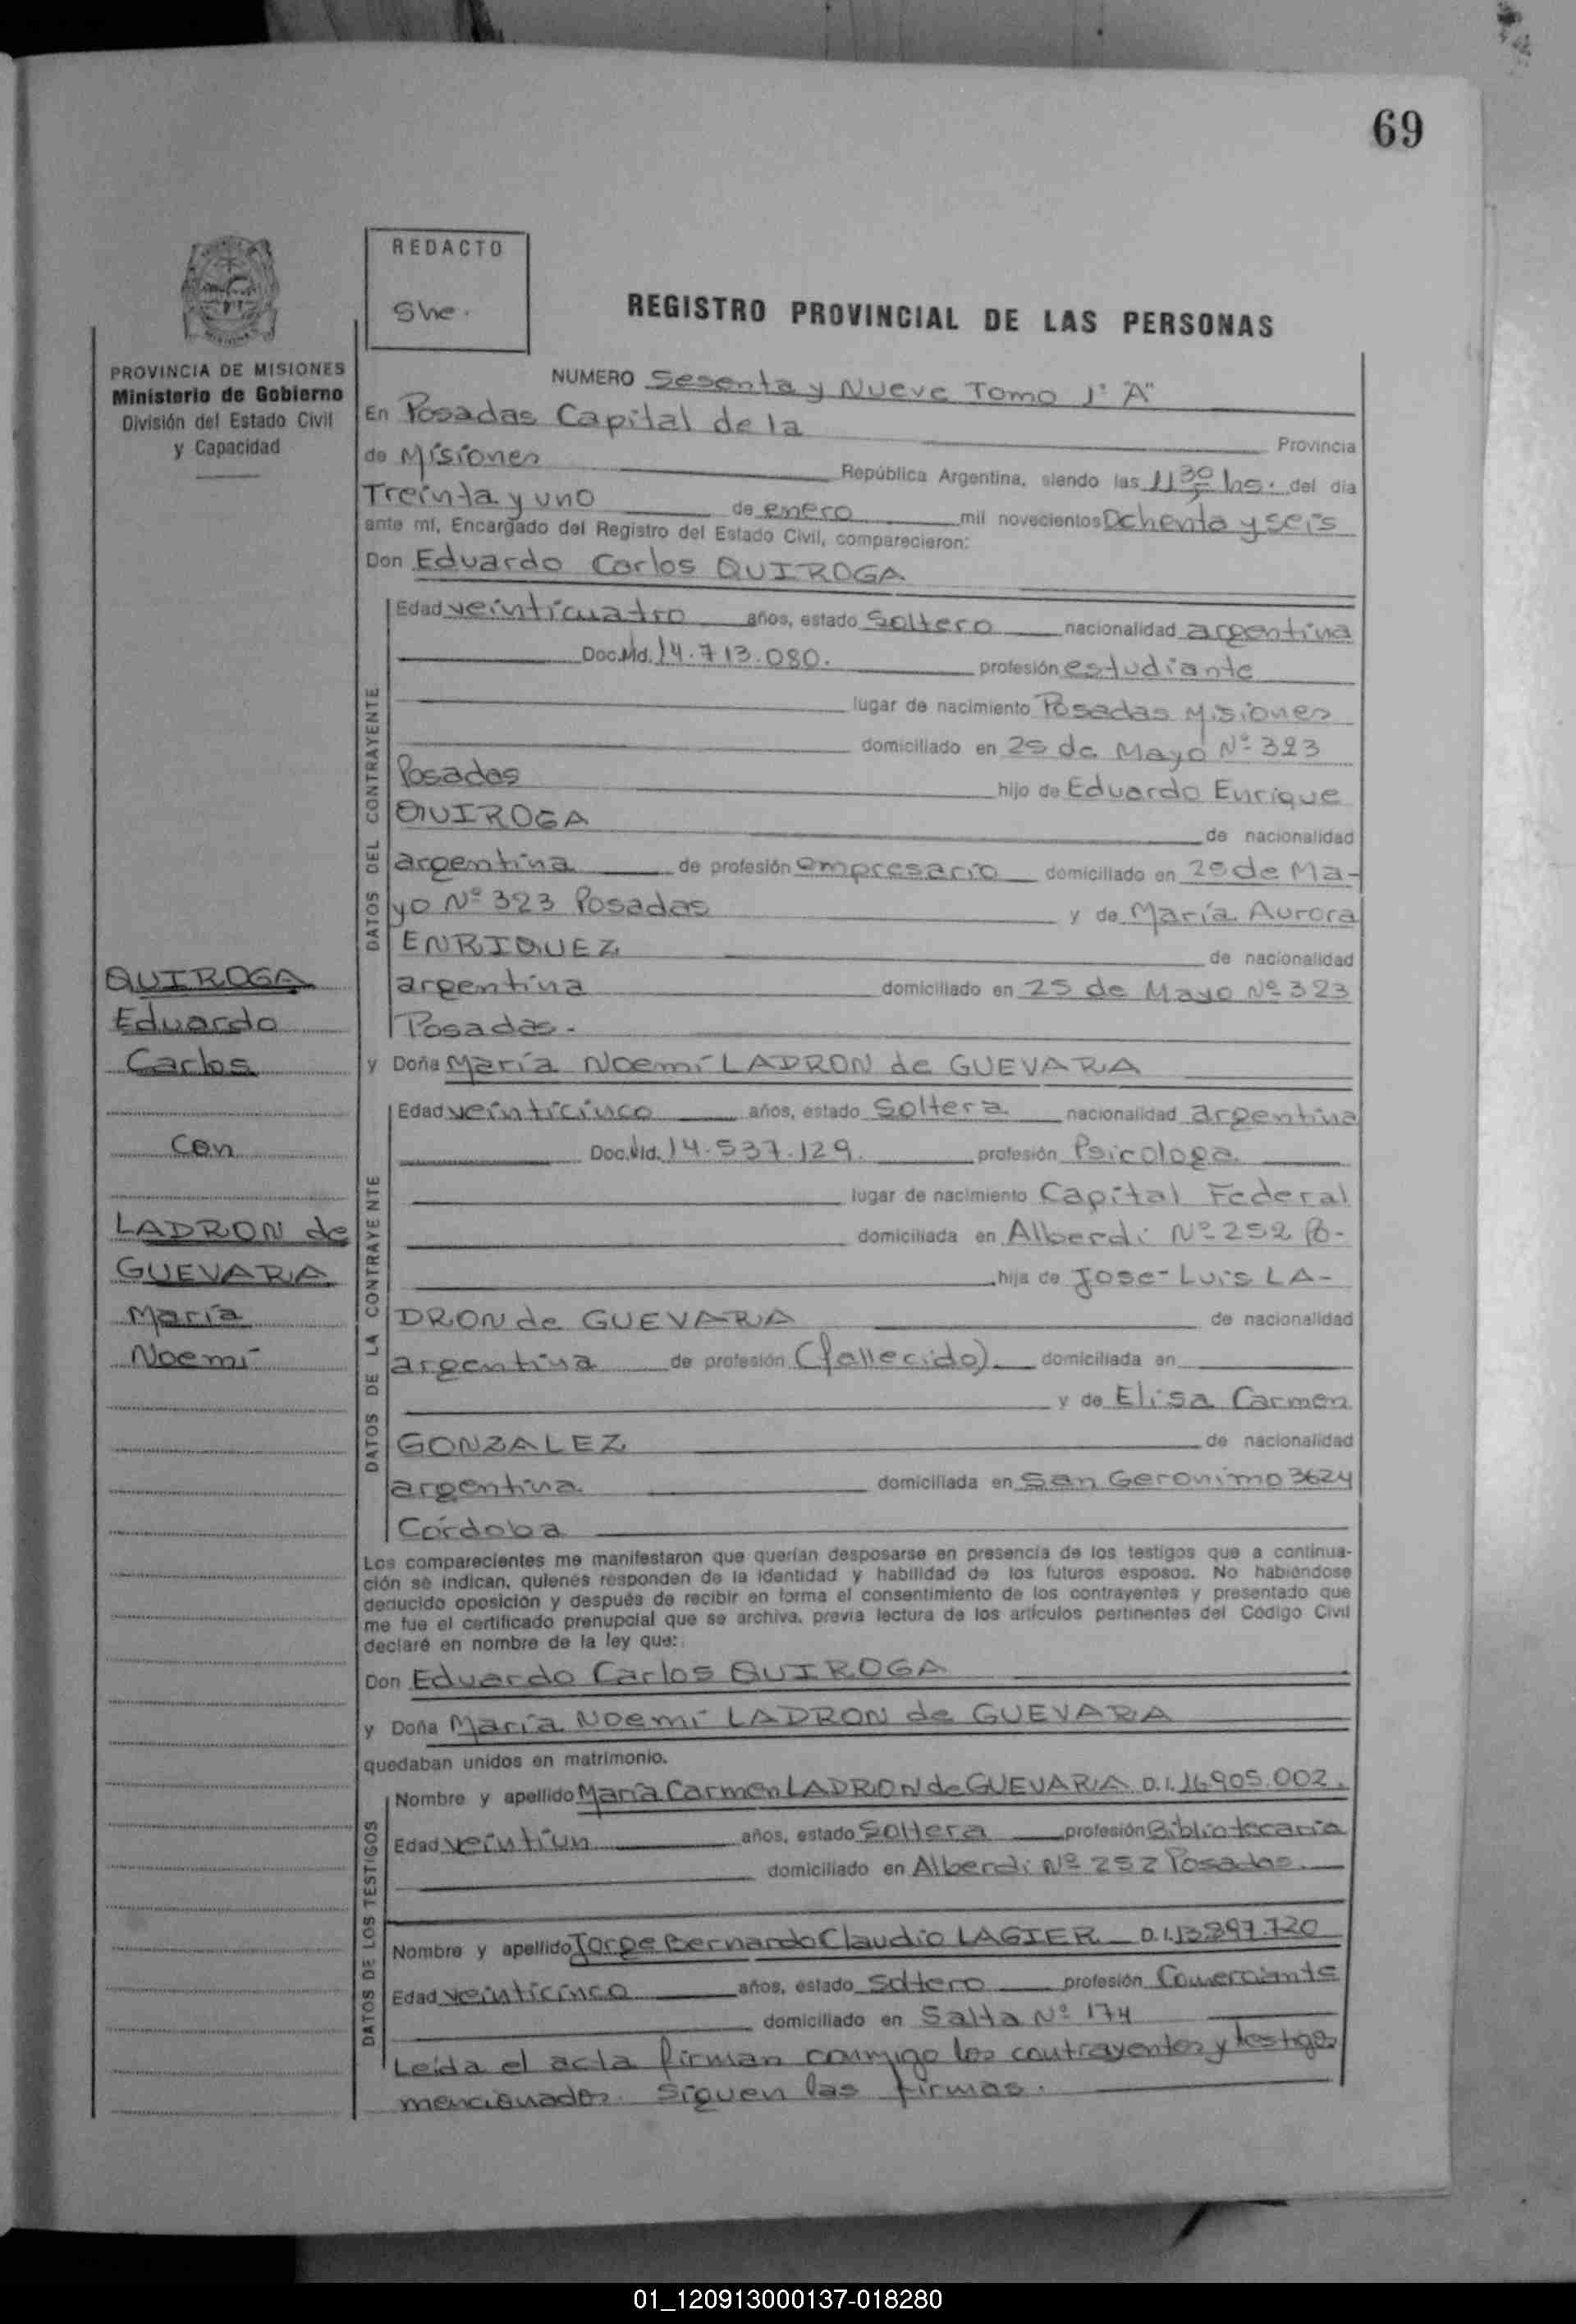 69
REDACTO
She.
REGISTRO PROVINCIAL DE LAS PERSONAS
PROVINCIA DE MISIONES
Ministerio de Gobierno
División del Estado Civil
y Capacidad
NUMERO Sesenta y Nueve Tomo 1º "A"
En Posadas Capital de la Provincia
de Misiones República Argentina, siendo las 11 30 hs. del día
Treinta y uno de enero mil novecientos Ochenta y seis
ante mí, Encargado del Registro del Estado Civil, comparecieron:
Don Eduardo Carlos QUIROGA
DATOS DEL CONTRAYENTE
Edad veinticuatro años, estado Soltero nacionalidad argentina
Doc.Nld. 14.713.080. profesión estudiante
lugar de nacimiento Posadas Misiones
domiciliado en 25 de Mayo Nº 323
Posadas hijo de Eduardo Enrique
QUIROGA de nacionalidad
argentina de profesión empresario domiciliado en 25 de Ma-
yo Nº 323 Posadas y de María Aurora
ENRIQUEZ de nacionalidad
argentina domiciliado en 25 de Mayo Nº 323
Posadas.-
QUIROGA
Eduardo
Carlos
con
LADRON de
GUEVARA
María
Noemí
y Doña María Noemí LADRON de GUEVARA
DATOS DE LA CONTRAYENTE
Edad veinticinco años, estado Soltera nacionalidad argentina
Doc.Nld. 14.537.129. profesión Psicologa
lugar de nacimiento Capítal Federal
domiciliada en Alberdi Nº 252 Po-
hija de Jose Luis LA-
DRON de GUEVARA de nacionalidad
argentina de profesión (fallecido). domiciliada en
y de Elisa Carmen
GONZALEZ de nacionalidad
argentina domiciliada en San Geronimo 3624
Córdoba
Los comparecientes me manifestaron que querían desposarse en presencia de los testigos que a continua-
ción se indican, quienes responden de la identidad y habilidad de los futuros esposos. No habiéndose
deducido oposición y después de recibir en forma el consentimiento de los contrayentes y presentado que
me fue el certificado prenupcial que se archiva, previa lectura de los artículos pertinentes del Código Civil
declaré en nombre de la ley que:
Don Eduardo Carlos QUIROGA
y Doña María Noemí LADRON de GUEVARA
quedaban unidos en matrimonio.
DATOS DE LOS TESTIGOS
Nombre y apellido María Carmen LADRON de GUEVARA D.I. 16.905.002.
Edad veintiun años, estado Soltera profesión Bibliotecaria
domiciliado en Alberdi Nº 252 Posadas.
Nombre y apellido Jorge Bernardo Claudio LAGIER D.I. 13.897.720
Edad veinticinco años, estado Soltero profesión Comerciante
domiciliado en Salta Nº 174
Leída el acta firman conmigo los contrayentes y testigos
mencionados. Siguen las firmas.
01_120913000137-018280